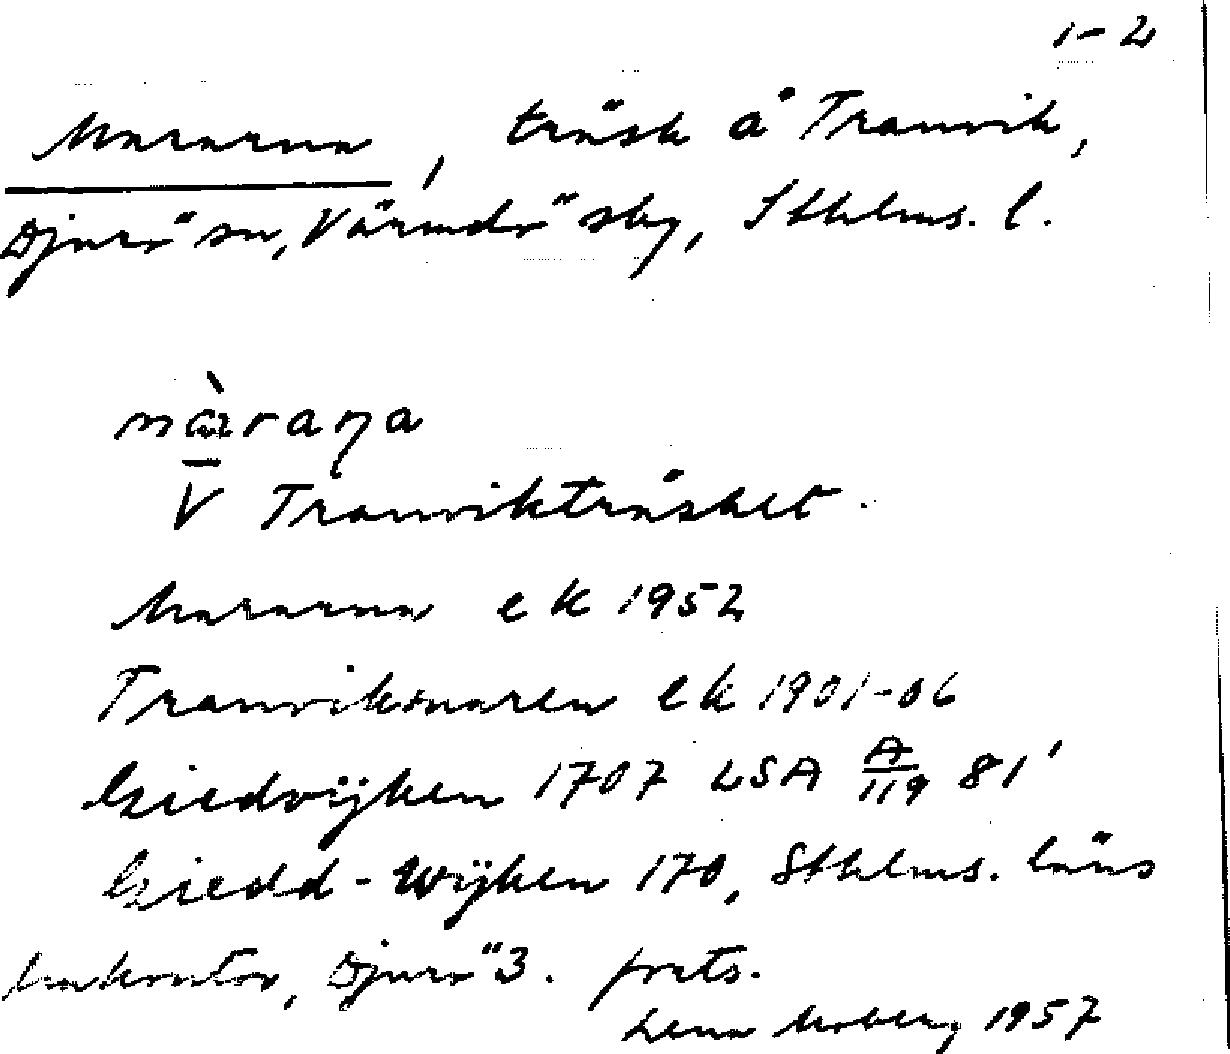 1-2
Mararna, träsk å Tranvik,
Djurö sn, Värmdö skg, Sthlms. l.
mà̱raņa
V Tranvikträsket.
Mararna ek 1952
Tranviksmaren ek 1901-06
Giedvijken 1707 LSA A/119 81'
Giedd-Wijken 170, Sthlms. läns
lmkontor, Djurö 3. forts.
Lena Moberg 1957